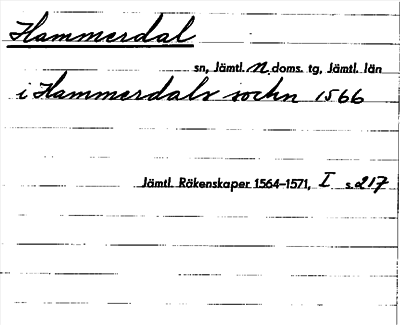 Hammerdal
sn, Jämtl. N. doms. tg, Jämtl. län
i Hammerdals sockn 1566
Jämtl. Räkenskaper 1564-1571, I s. 217